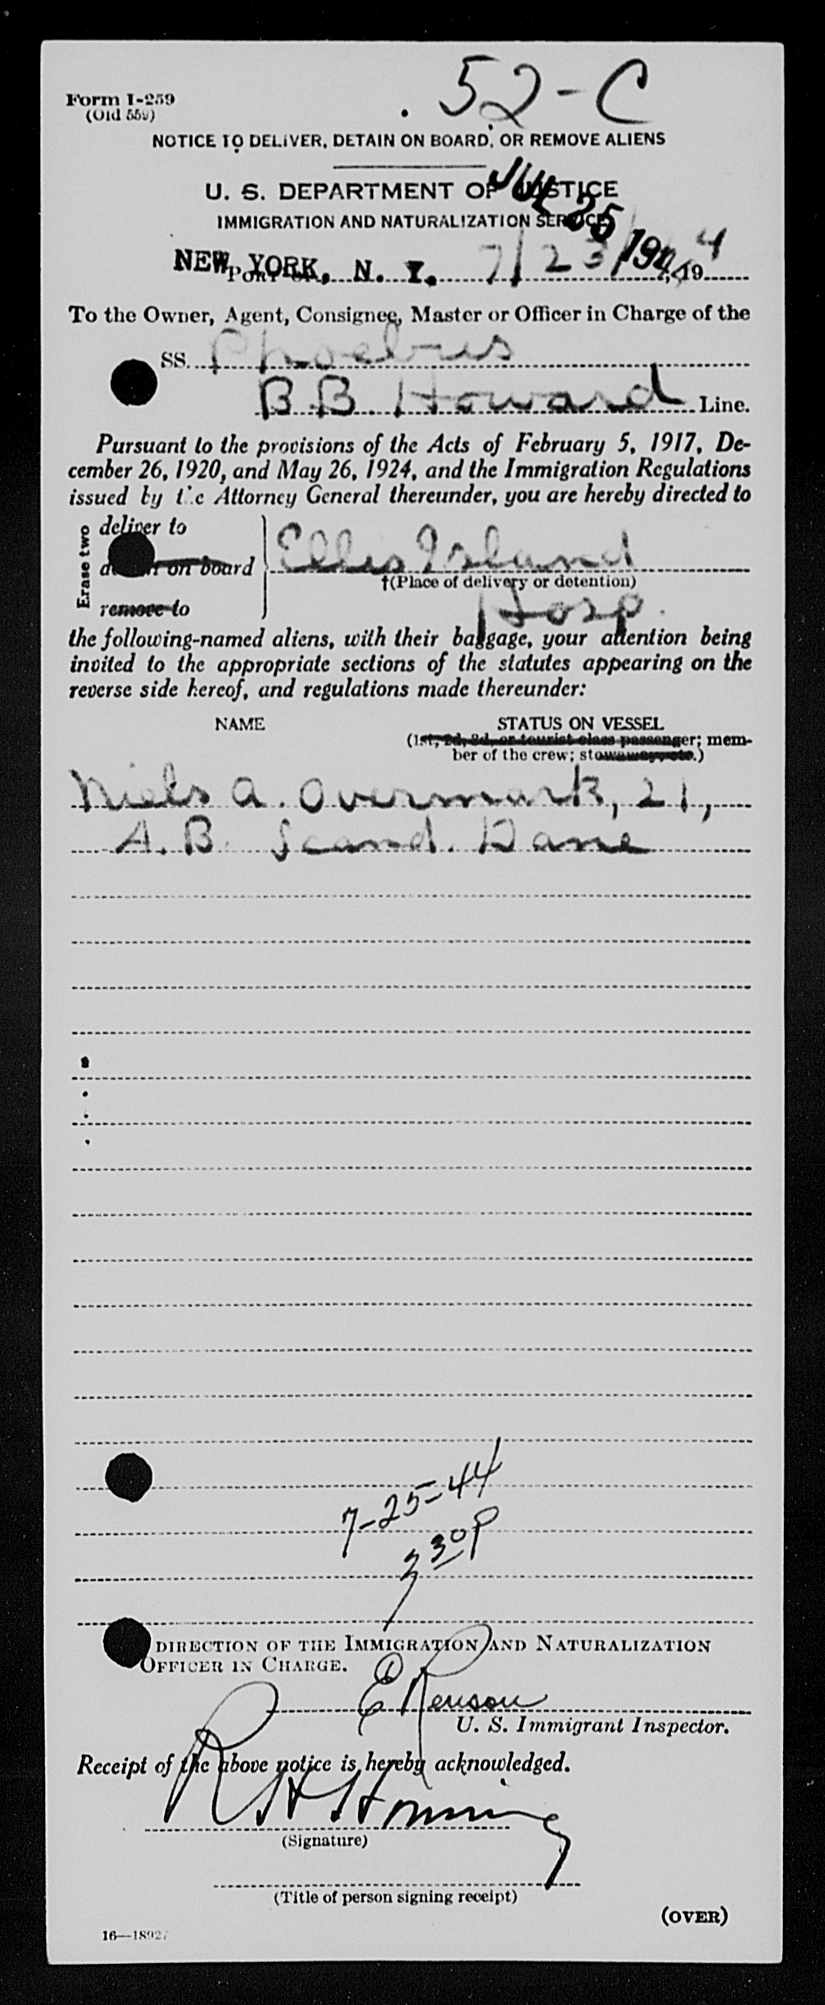 52-C
Form I-259
(Old 559)
NOTICE TO DELIVER, DETAIN ON BOARD, OR REMOVE ALIENS
U. S. DEPARTMENT OF JUSTICE
JUL 25 1944
IMMIGRATION AND NATURALIZATION SERVICE
NEW YORK, N. Y. 7/23/ 194
To the Owner, Agent, Consignee, Master or Officer in Charge of the
SS. Phoebus
B. B. Howard Line.
Pursuant to the provisions of the Acts of February 5, 1917, De-
cember 26, 1920, and May 26, 1924, and the Immigration Regulations
issued by the Attorney General thereunder, you are hereby directed to
Erase two
deliver to
on board
remove to
Ellis Island
†(Place of delivery or detention)
Hosp.
the following-named aliens, with their baggage, your attention being
invited to the appropriate sections of the statutes appearing on the
reverse side hereof, and regulations made thereunder:
NAME STATUS ON VESSEL
(1st, 2d, 3d, or tourist class passenger; mem-
ber of the crew; stowaway, etc.)
Niels A. Overmark, 21,
A. B. Scand. Dane
7-25-44
3 30 P
DIRECTION OF THE IMMIGRATION AND NATURALIZATION
OFFICER IN CHARGE.
U. S. Immigrant Inspector.
Receipt of the above notice is hereby acknowledged.
(Signature)
(Title of person signing receipt)
(OVER)